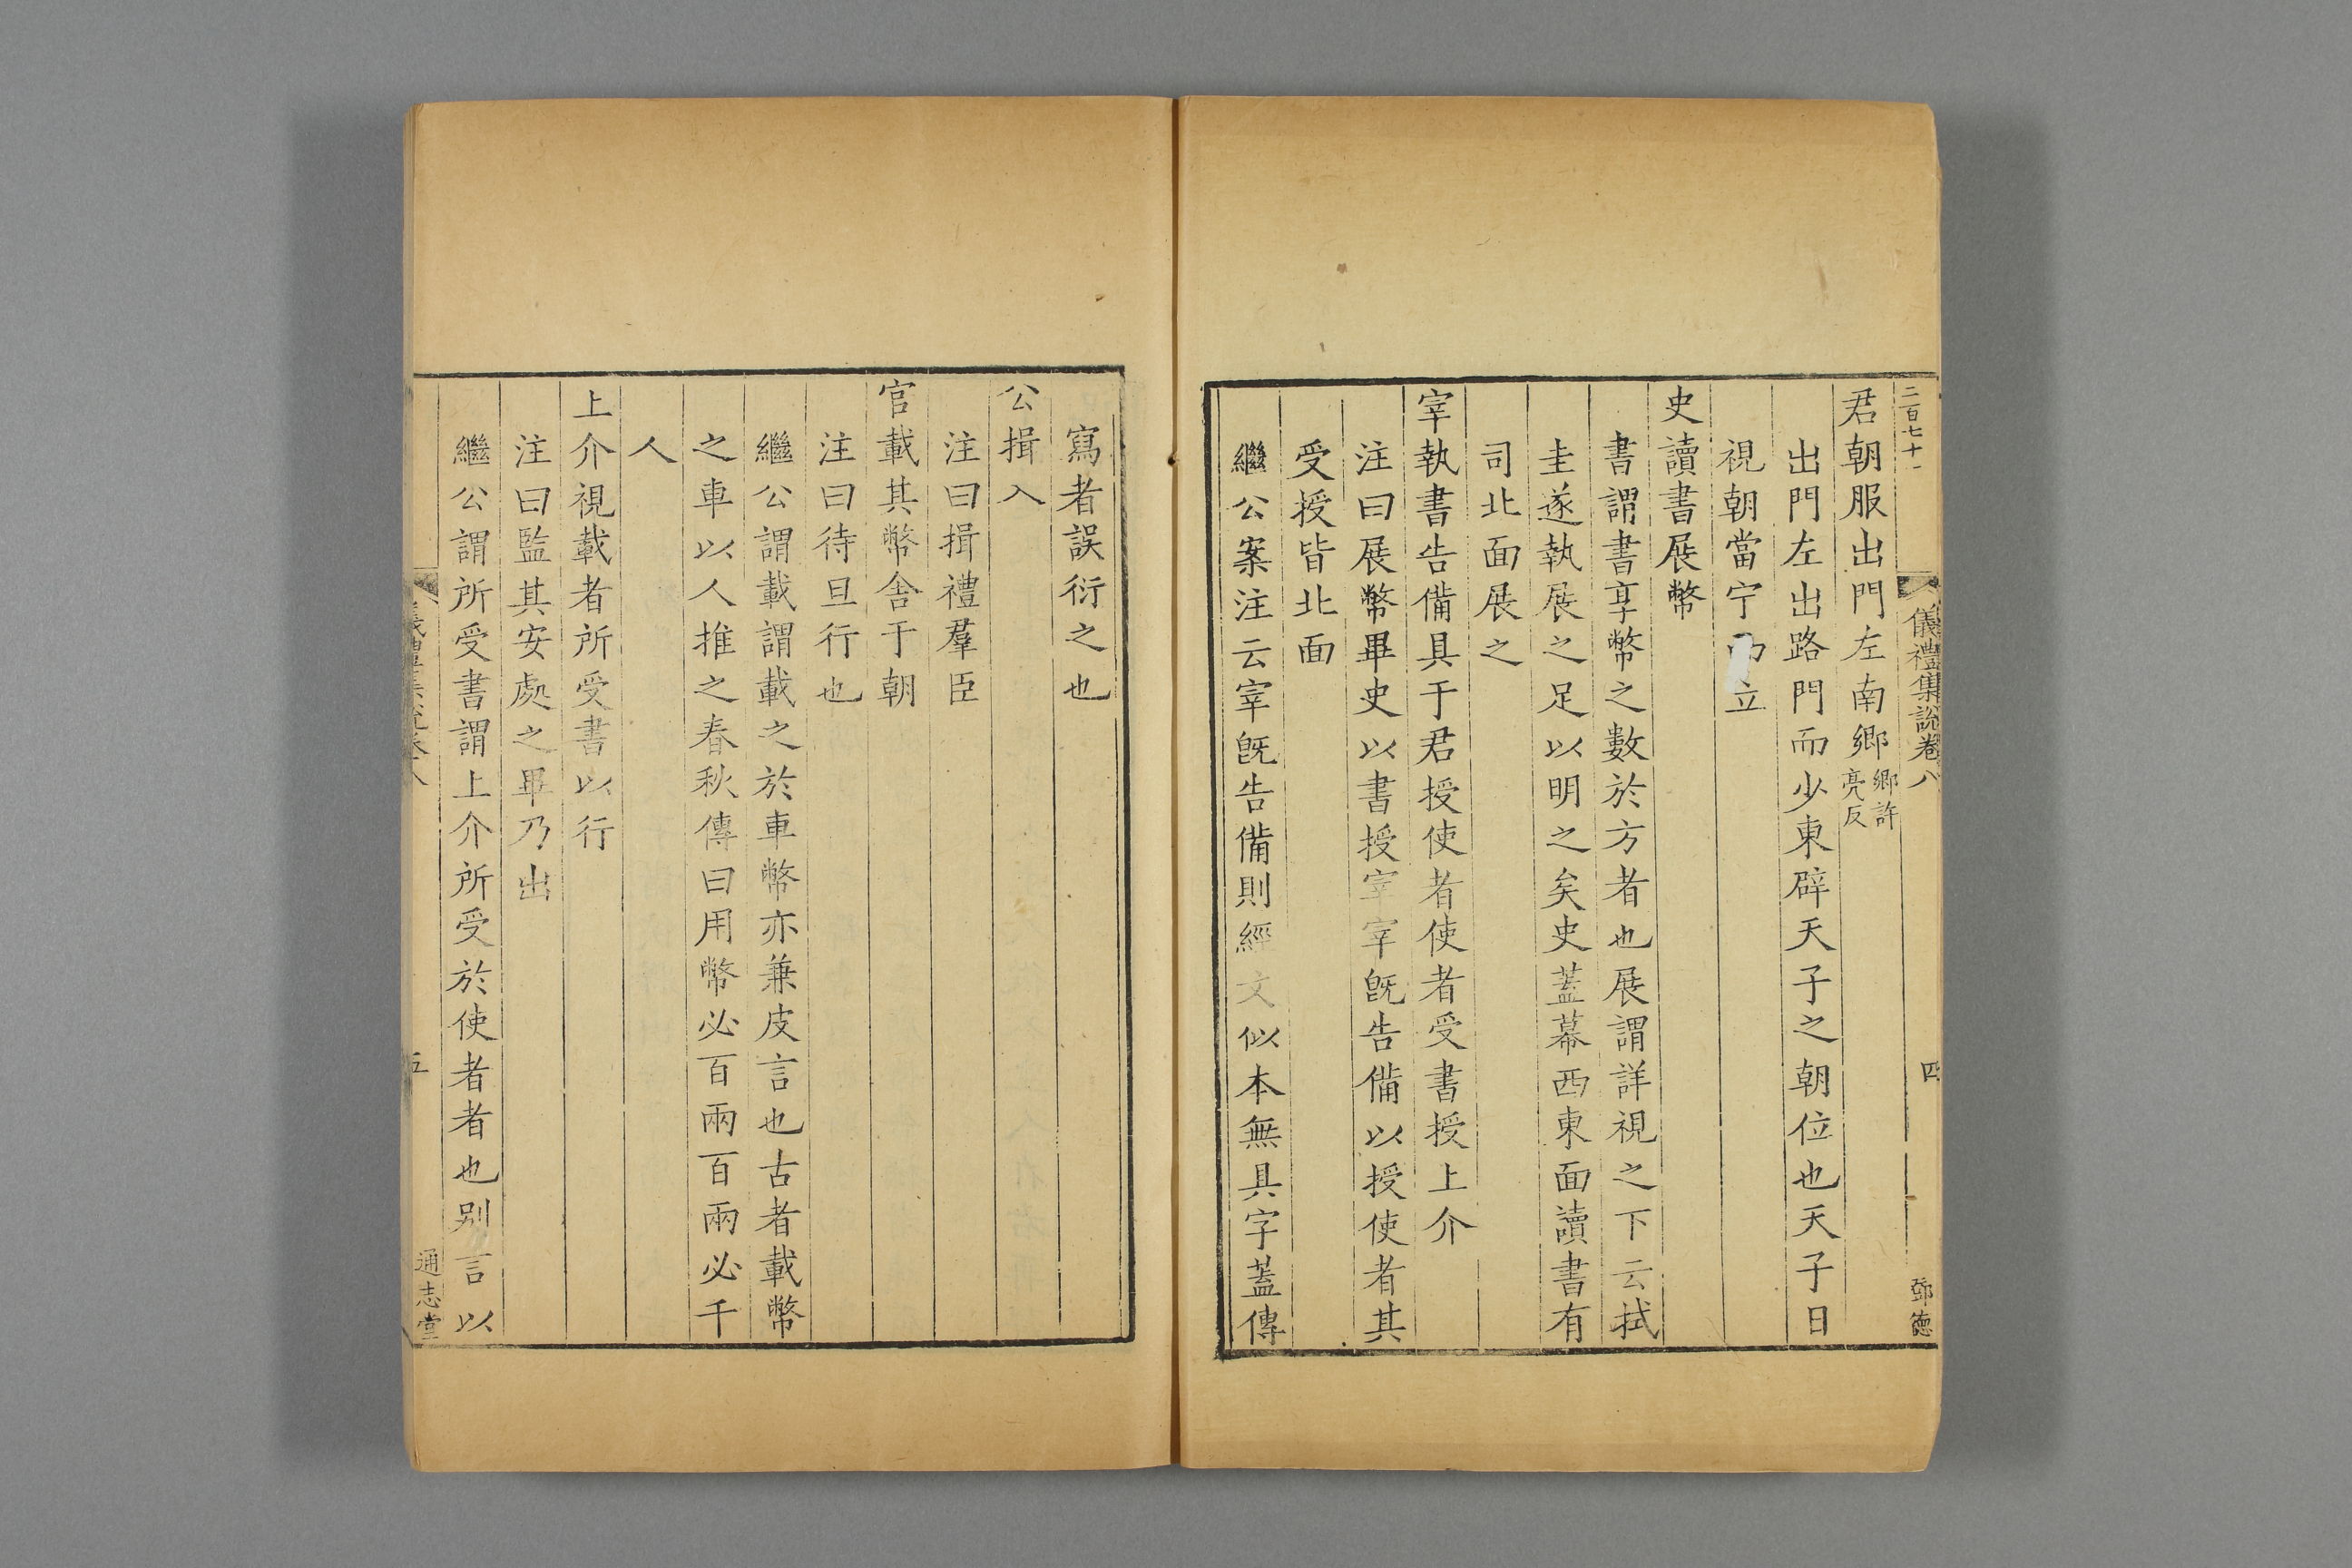 二百七十一
儀禮集說卷八
四
鄧德
君朝服出門左南鄉鄉許亮反
出門左出路門而少東辟天子之朝位也天子日
視朝當宁立
史讀書展幣
書謂書享幣之數於方者也展謂詳視之下云拭
圭遂執展之足以明之矣史蓋幕西東面讀書有
司北面展之
宰執書告備具于君授使者使者受書授上介
注曰展幣畢史以書授宰宰旣告備以授使者其
受授皆北面
繼公案注云宰旣告備則經文似本無具字蓋傳
寫者誤衍之也
公揖入
注曰揖禮羣臣
官載其幣舍于朝
注曰待旦行也
繼公謂載謂載之於車幣亦兼皮言也古者載幣
之車以人推之春秋傳曰用幣必百兩百兩必千
人
上介視載者所受書以行
注曰監其安處之畢乃出
繼公謂所受書謂上介所受於使者者也別言以
五
通志堂